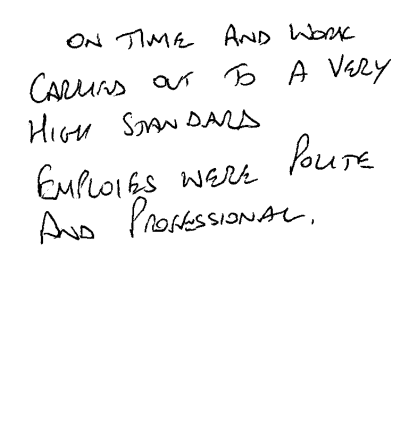 ON TIME AND WORK
CARRIED OUT TO A VERY
HIGH STANDARD
EMPLOIES WERE POLITE
AND PROFESSIONAL.